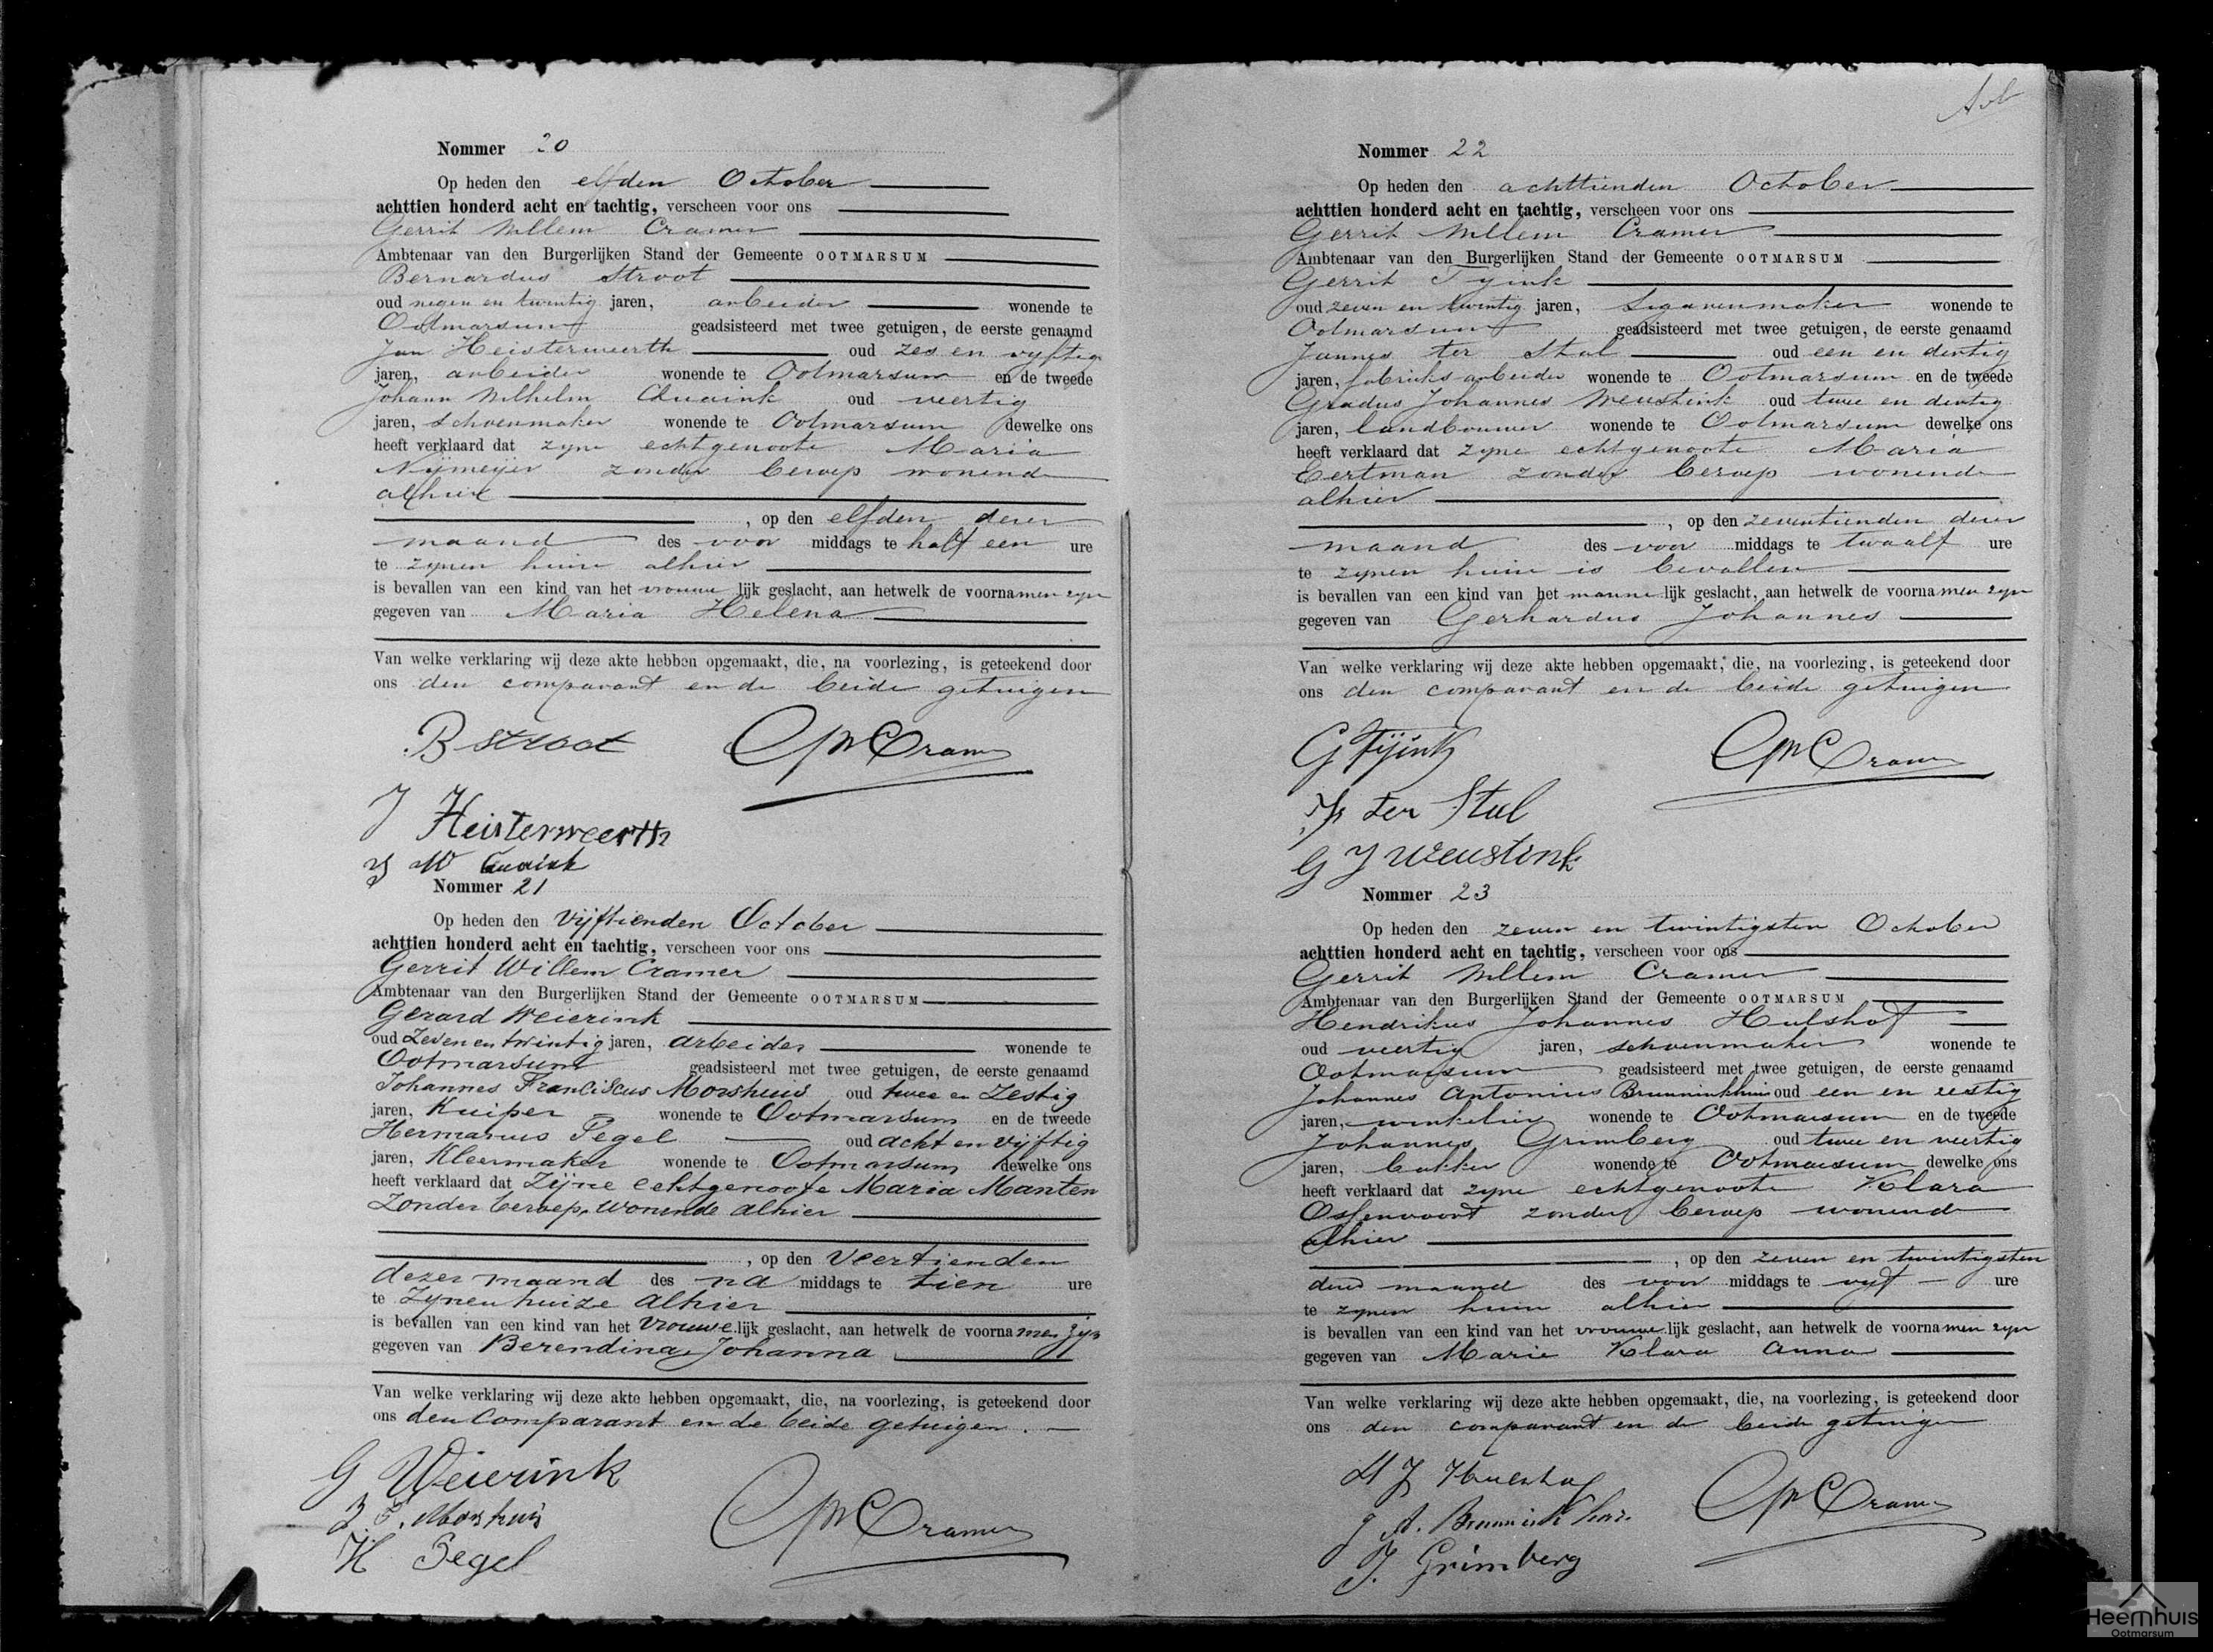 Nommer 20
Op heden den elfden October
achttien honderd acht en tachtig, verscheen voor ons
Gerrit Willem Cramer
Ambtenaar van den Burgerlijken Stand der Gemeente OOTMARSUM
Bernardus Stroot
oud negen en twintig jaren, arbeider wonende te
Ootmarsum geadsisteerd met twee getuigen, de eerste genaamd
Jan Heisterweerth oud zes en vyftig
jaren, arbeider wonende te Ootmarsum en de tweede
Johann Wilhelm Quaink oud veertig
jaren, schoenmaker wonende te Ootmarsum dewelke ons
heeft verklaard dat zyne echtgenoote Maria
Nijmeijer zonder beroep wonende
alhier
, op den elfden dezer
maand des voor middags te half een ure
te zynen huize alhier
is bevallen van een kind van het vrouwe lijk geslacht, aan hetwelk de voornamen zyn
gegeven van Maria Helena
Van welke verklaring wij deze akte hebben opgemaakt, die, na voorlezing, is geteekend door
ons den comparant en de beide getuigen
B Stroot GWCramer
J Heisterweerth
J W Quaink
Nommer 21
Op heden den Vijftienden October
achttien honderd acht en tachtig, verscheen voor ons
Gerrit Willem Cramer
Ambtenaar van den Burgerlijken Stand der Gemeente OOTMARSUM
Gerard Weierink
oud Zeven en twintig jaren, arbeider wonende te
Ootmarsum geadsisteerd met twee getuigen, de eerste genaamd
Johannes Franciscus Morshuis oud twee en Zestig
jaren, Kuiper wonende te Ootmarsum en de tweede
Hermannus Pegel oud acht en vijftig
jaren, Kleermaker wonende te Ootmarsum dewelke ons
heeft verklaard dat Zijne echtgenoote Maria Manten
Zonder beroep, wonende alhier
, op den Veertienden
dezer maand des na middags te tien ure
te Zynen huize alhier
is bevallen van een kind van het Vrouwe lijk geslacht, aan hetwelk de voornamen zyn
gegeven van Berendina, Johanna
Van welke verklaring wij deze akte hebben opgemaakt, die, na voorlezing, is geteekend door
ons den Comparant en de beide getuigen.
G Weierink
J. F. Morshuis GWCramer
H Pegel
Nommer 22
Op heden den achttienden October
achttien honderd acht en tachtig, verscheen voor ons
Gerrit Willem Cramer
Ambtenaar van den Burgerlijken Stand der Gemeente OOTMARSUM
Gerrit Tyink
oud zeven en twintig jaren, Sigarenmaker wonende te
Ootmarsum geadsisteerd met twee getuigen, de eerste genaamd
Jannes ter Stal oud een en dertig
jaren, fabrieks arbeider wonende te Ootmarsum en de tweede
Gradus Johannes Weustink oud twee en dertig
jaren, landbouwer wonende te Ootmarsum dewelke ons
heeft verklaard dat zyne echtgenoote Maria
Eertman zonder beroep wonende
alhier
, op den zeventienden dezer
maand des voor middags te twaalf ure
te zynen huize is bevallen
is bevallen van een kind van het manne lijk geslacht, aan hetwelk de voornamen zyn
gegeven van Gerhardus Johannes
Van welke verklaring wij deze akte hebben opgemaakt, die, na voorlezing, is geteekend door
ons den comparant en de beide getuigen
G Tijink GWCramer
Js ter Stal
G J Weustink
Nommer 23
Op heden den zeven en twintigsten October
achttien honderd acht en tachtig, verscheen voor ons
Gerrit Willem Cramer
Ambtenaar van den Burgerlijken Stand der Gemeente OOTMARSUM
Hendrikus Johannes Hulshof
oud veertig jaren, schoenmaker wonende te
Ootmarsum geadsisteerd met twee getuigen, de eerste genaamd
Johannes Antonius Bruuninkhuis oud een en zestig
jaren, winkelier wonende te Ootmarsum en de tweede
Johannes Grimberg oud twee en veertig
jaren, bakker wonende te Ootmarsum dewelke ons
heeft verklaard dat zyne echtgenoote Klara
Ossenvoort zonder beroep wonende
alhier
, op den zeven en twintigsten
dezer maand des voor middags te vyf ure
te zynen huize alhier
is bevallen van een kind van het vrouwe lijk geslacht, aan hetwelk de voornamen zyn
gegeven van Marie Klara Anna
Van welke verklaring wij deze akte hebben opgemaakt, die, na voorlezing, is geteekend door
ons den comparant en de beide getuigen
H J Hulshof GWCramer
J A. Bruuninkhuis
J. Grimberg
Heemhuis
Ootmarsum